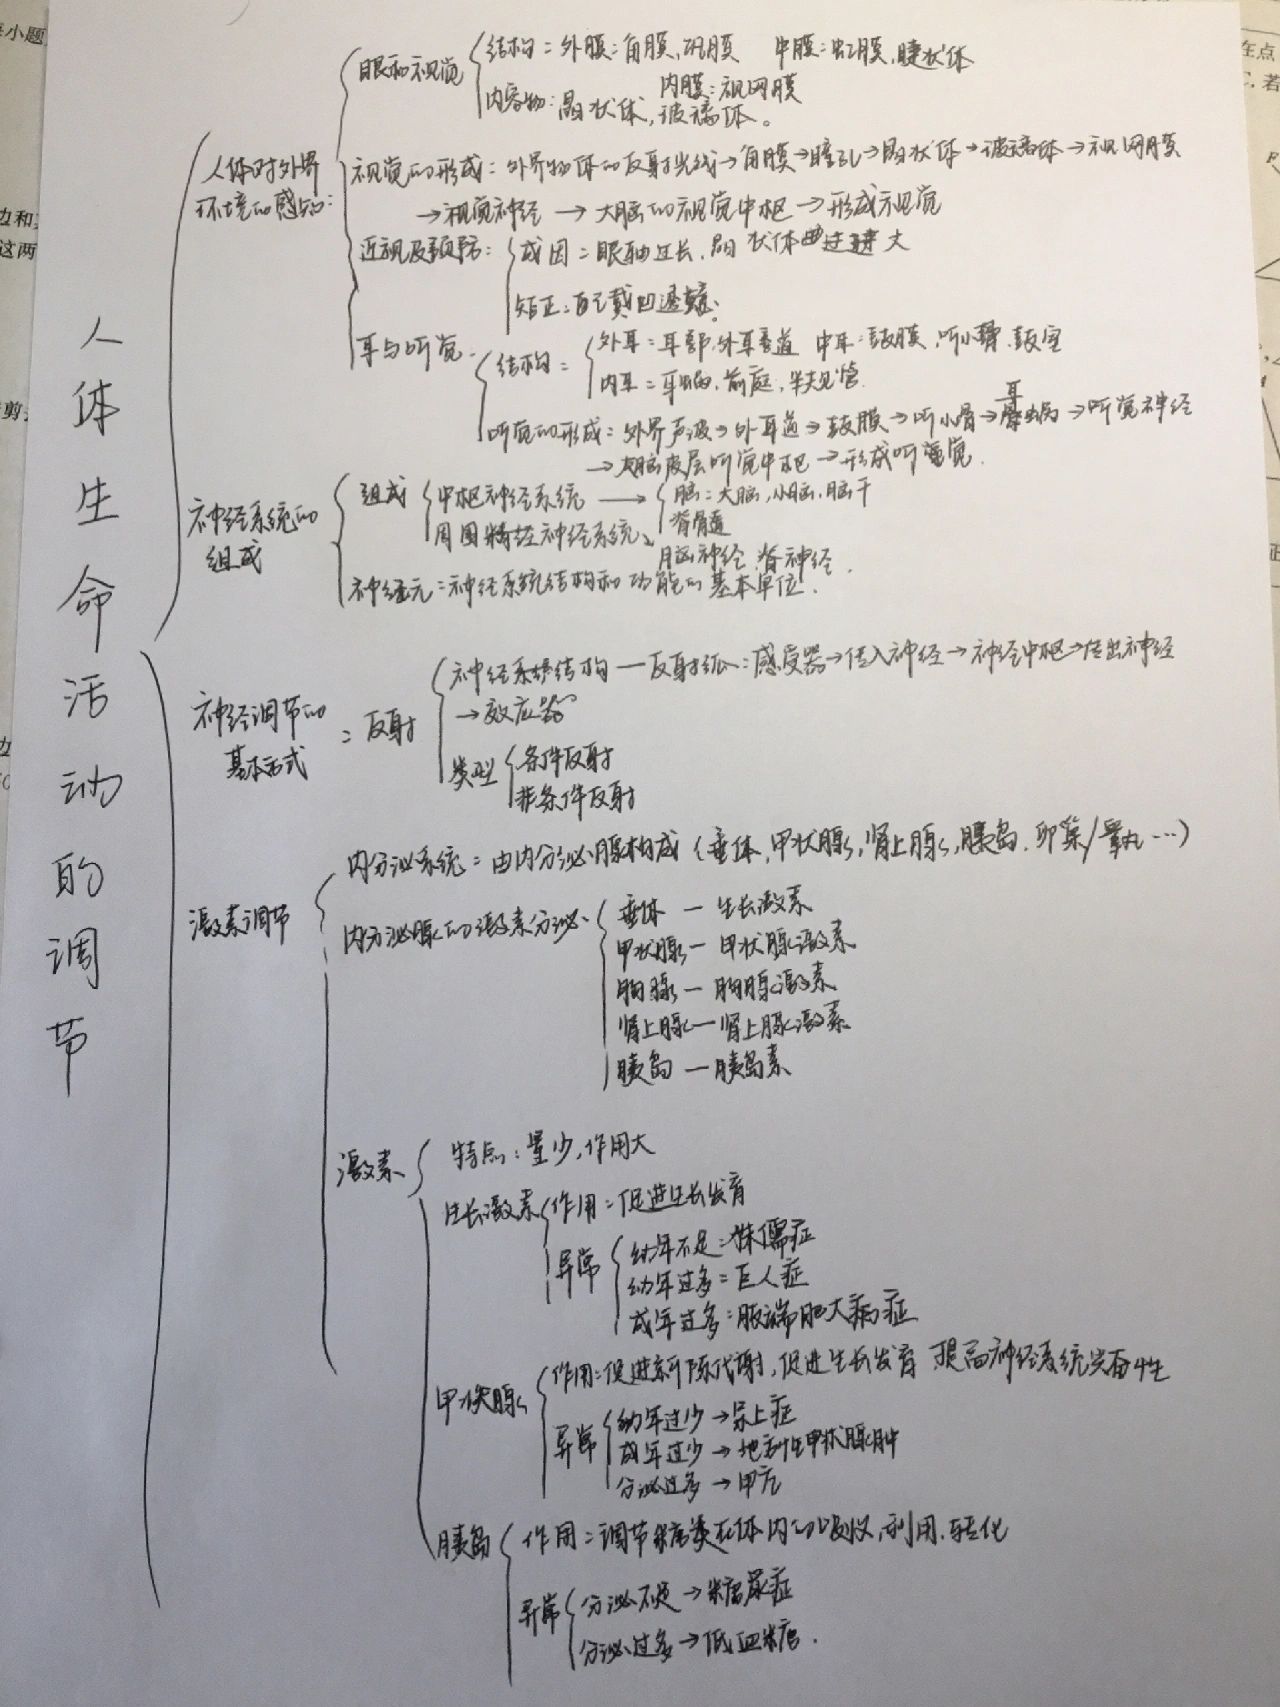 人体生命活动的调节
眼和视觉
结构：外膜：角膜,巩膜 中膜：虹膜,睫状体
内膜：视网膜
内容物：晶状体,玻璃体。
人体对外界
环境的感知：
视觉的形成：外界物体的反射光线→角膜→瞳孔→晶状体→玻璃体→视网膜
→视觉神经→大脑的视觉中枢→形成视觉
近视及预防：
成因：眼轴过长,晶状体曲度过大
矫正：自己戴凹透镜.
耳与听觉
结构：
外耳：耳郭,外耳道 中耳：鼓膜,听小骨,鼓室
内耳：耳蜗,前庭,半规管.
听觉的形成：外界声波→外耳道→鼓膜→听小骨→耳蜗→听觉神经
→大脑皮层听觉中枢→形成听觉.
神经系统的
组成
组成
中枢神经系统→
脑：大脑,小脑,脑干
脊髓
周围神经系统
脑神经,脊神经.
神经元：神经系统结构和功能的基本单位.
神经调节的
基本形式
：反射
神经系统结构—反射弧：感受器→传入神经→神经中枢→传出神经
→效应器
类型
条件反射
非条件反射
激素调节
内分泌系统：由内分泌腺构成(垂体,甲状腺,肾上腺,胰岛,卵巢/睾丸…)
内分泌腺的激素分泌
垂体—生长激素
甲状腺—甲状腺激素
胸腺—胸腺激素
肾上腺—肾上腺激素
胰岛—胰岛素
激素
特点：量少,作用大
生长激素
作用：促进生长发育
异常
幼年不足：侏儒症
幼年过多：巨人症
成年过多：肢端肥大症
甲状腺
作用：促进新陈代谢,促进生长发育 提高神经系统兴奋性
异常
幼年过少→呆小症
成年过少→地方性甲状腺肿
分泌过多→甲亢
胰岛
作用：调节糖类在体内的吸收,利用,转化
异常
分泌不足→糖尿症
分泌过多→低血糖.
小题
边和
这两
剪
边
在点
若